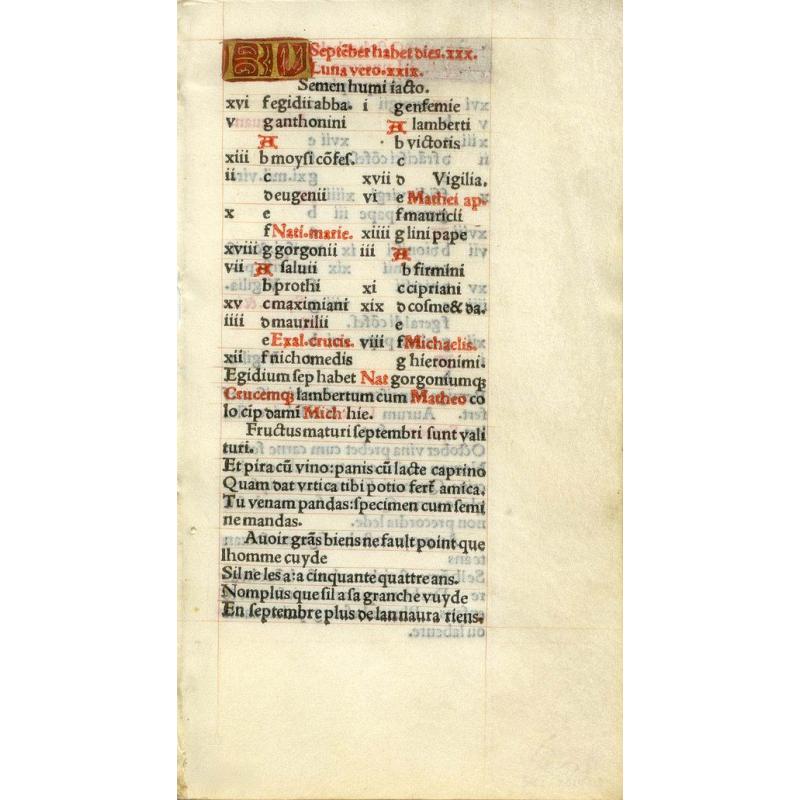 KL Septẽber habet dies.xxx.
Luna vero.xxix.
Semen humi iacto.
xvi f egidii abba.
v g anthonini
A
xiii b moysi cõfes.
ii c
d eugenii
x e
f Nati.marie.
xviii g gorgonii
vii A saluii
b prothi
xv c maximiani
iiii d maurilii
e Exal.crucis.
xii f nichomedis
i g enfemie
A lamberti
b victoris
c
xvii d Vigilia.
vi e Mathei ap.
f mauricii
xiiii g lini pape
iii A
b firmini
xi c cipriani
xix d cosme & da.
e
viii f Michaelis.
g hieronimi.
Egidium sep habet Nat gorgoniumqꝫ
Crucemqꝫ lambertum cum Matheo co
lo cip dami Mich hie.
Fructus maturi septembri sunt vali
turi.
Et pira cũ vino:panis cũ lacte caprino
Quam dat vrtica tibi potio fert̃ amica.
Tu venam pandas:specimen cum semi
ne mandas.
Auoir grãs biens ne fault point que
lhomme cuyde
Sil ne les a:a cinquante quattre ans.
Nomplus que sil a sa granche vuyde
En septembre plus de lan naura riens.